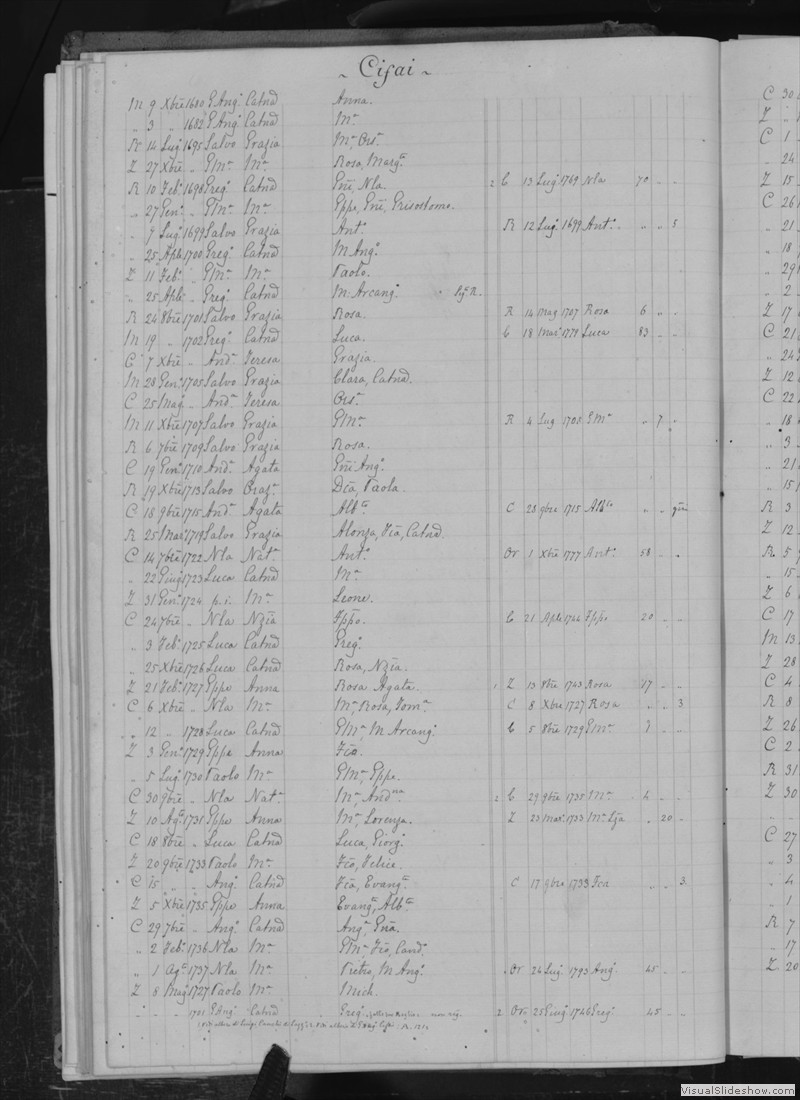 ~ Cisai ~
M 9 Xbre 1680 G Ang.o Catnd Anna.
„ 3 „ 1682 G Ang.o Catnd M.a
R 14 Lug.o 1695 Salvo Grazia M.a Ors.a
Z 27 Xbre „ G M.a M.a Rosa, Marg.ta
R 10 Feb.o 1698 Greg.o Catnd Gne, Nla. 2 C 13 Lug.o 1769 Nla 70 „ „
„ 27 Gen.o „ G M.a M.a Gppe, Gne, Grisostomo.
„ 9 Lug.o 1699 Salvo Grazia Ant.o R 12 Lug.o 1699 Ant.o „ „ 5
„ 25 Aple 1700 Greg.o Catnd M Ang.a
Z 11 Feb.o „ G M.a M.a Paolo.
„ 25 Aple „ Greg.o Catnd M.a Arcang.a
R 24 8bre 1701 Salvo Grazia Rosa. R 14 Mag 1707 Rosa 6 „ „
M 19 „ 1702 Greg.o Catnd Luca. C 18 Mar.o 1779 Luca 83 „ „
C 7 Xbre „ And.a Teresa Grazia.
M 28 Gen.o 1705 Salvo Grazia Clara, Catnd.
C 25 Mag.o „ And.a Teresa Ors.a
M 11 Xbre 1707 Salvo Grazia G M.a R 4 Lug 1708 G M.a „ 7 „
R 6 7bre 1709 Salvo Grazia Rosa.
C 19 Gen.o 1710 And.a Agata Gne Ang.o
R 19 Xbre 1713 Salvo Graz.a Dca, Paola.
C 18 9bre 1715 And.a Agata Alb.to C 23 9bre 1715 Alb.to „ „
R 25 Mar.o 1719 Salvo Grazia Alonza, Fca, Catnd.
C 14 7bre 1722 Nla Nat.a Ant.o Or 1 Xbre 1777 Ant.o 58 „ „
„ 22 Giug.o 1723 Luca Catnd M.a
Z 31 Gen.o 1724 p.i. M.a Leone.
C 24 7bre „ Nla Nzia Fppo. C 21 Aple 1744 Fppo 20 „ „
„ 3 Feb.o 1725 Luca Catnd Greg.o
„ 25 Xbre 1726 Luca Catnd Rosa, Nzia.
Z 21 Feb.o 1727 Gppe Anna Rosa Agata. 1 Z 13 8bre 1743 Rosa 17 „ „
C 6 Xbre „ Nla M.a M.a Rosa, Tom.a C 8 Xbre 1727 Rosa „ „ 3
„ 12 „ 1728 Luca Catnd G M.a M Arcang.o C 5 8bre 1729 G M.a „ „
Z 3 Gen.o 1729 Gppe Anna Fco.
„ 5 Lug.o 1730 Paolo M.a G M.a, Gppe.
C 30 9bre „ Nla Nat.a M.a, And.na 2 C 29 9bre 1735 M.a 4 „ „
Z 10 Ag.to 1731 Gppe Anna M.a, Lorenza. Z 23 Mar.o 1733 M.a Lza „ 20 „
C 18 8bre „ Luca Catnd Luca, Giorg.o
Z 20 9bre 1733 Paolo M.a Fco, Felice.
C 15 „ „ Ang.o Catnd Fca, Evang.ta C 17 9bre 1733 Fca „ „ 3
Z 5 Xbre 1735 Gppe Anna Evang.ta, Alb.ta
C 29 7bre „ Ang.o Catnd Ang.a, Gna.
„ 2 Feb.o 1736 Nla M.a G M.a Fco, Cand.o
„ 1 Ag.to 1737 Nla M.a Pietro, M Ang.o Or 24 Lug.o 1793 Ang.o 45 „ „
Z 8 Mag.o 1727 Paolo M.a Mich.
„ „ „ 1701 G Ang.o Catnd Greg.o 2 Or 25 Giug.o 1746 Greg.o 45 „ „
C 30
Z
C 1
„ 24
Z 15
C 26
„ 21
„ 18
„ 29
„ 2
Z 17
C 21
„ 24
Z 12
C 22
„ 18
„ 3
„ 21
„ 15
R 3
Z 12
R 5
„ 15
Z 6
C 17
M 13
Z 28
C 4
R 8
Z 26
C 2
R 31
Z 30
C 27
„ 3
„ 4
„ 1
R 7
„ 17
Z 20
VisualSlideshow.com